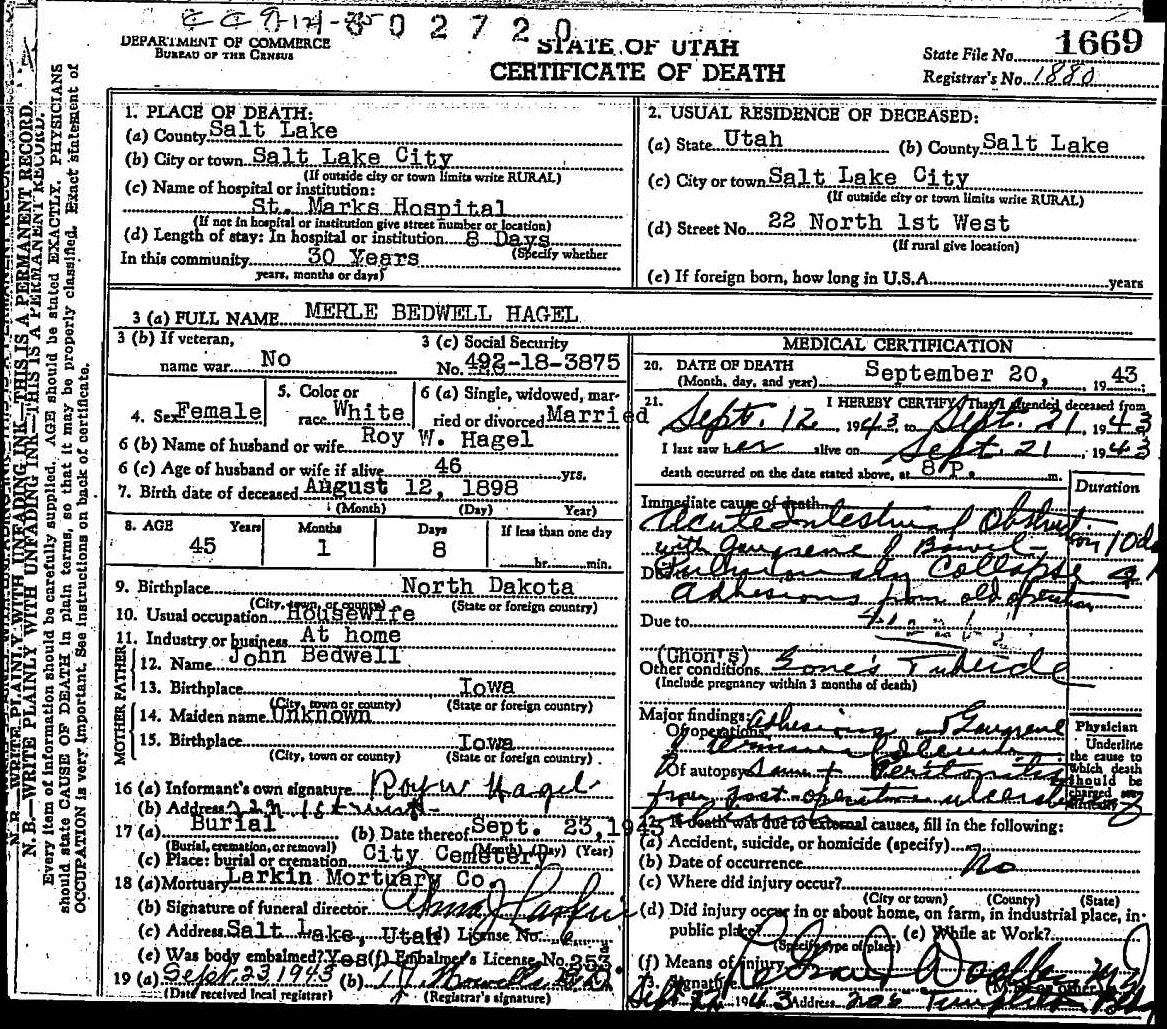 0 2 7 2 0
DEPARTMENT OF COMMERCE
BUREAU OF THE CENSUS
STATE OF UTAH
CERTIFICATE OF DEATH
State File No. 1669
Registrar's No. 1880
N. B.—WRITE PLAINLY WITH UNFADING INK—THIS IS A PERMANENT RECORD.
Every item of information should be carefully supplied. AGE should be stated EXACTLY. PHYSICIANS
should state CAUSE OF DEATH in plain terms, so that it may be properly classified. Exact statement of
OCCUPATION is very important. See instructions on back of certificate.
1. PLACE OF DEATH:
(a) County Salt Lake
(b) City or town Salt Lake City
(If outside city or town limits write RURAL)
(c) Name of hospital or institution:
St. Marks Hospital
(If not in hospital or institution give street number or location)
(d) Length of stay: In hospital or institution 8 Days
(Specify whether
In this community 30 Years
years, months or days)
2. USUAL RESIDENCE OF DECEASED:
(a) State Utah (b) County Salt Lake
(c) City or town Salt Lake City
(If outside city or town limits write RURAL)
(d) Street No. 22 North 1st West
(If rural give location)
(e) If foreign born, how long in U.S.A. years
3 (a) FULL NAME MERLE BEDWELL HAGEL
3 (b) If veteran,
name war No
3 (c) Social Security
No. 492-18-3875
4. Sex Female
5. Color or
race White
6 (a) Single, widowed, mar-
ried or divorced Married
6 (b) Name of husband or wife Roy W. Hagel
6 (c) Age of husband or wife if alive 46 yrs.
7. Birth date of deceased August 12, 1898
(Month) (Day) Year)
8. AGE Years Months Days If less than one day
45 1 8 hr. min.
9. Birthplace North Dakota
(City, town or county) (State or foreign country)
10. Usual occupation Housewife
11. Industry or business At home
FATHER
12. Name John Bedwell
13. Birthplace Iowa
(City, town or county) (State or foreign country)
MOTHER
14. Maiden name Unknown
15. Birthplace Iowa
(City, town or county) (State or foreign country)
16 (a) Informant's own signature Roy W Hagel
(b) Address
17 (a) Burial (b) Date thereof Sept. 23, 1943
(Burial, cremation, or removal) (Month) (Day) (Year)
(c) Place: burial or cremation City Cemetery
18 (a) Mortuary Larkin Mortuary Co.
(b) Signature of funeral director
(c) Address Salt Lake, Utah (d) License No.
(e) Was body embalmed? Yes (f) Embalmer's License No. 253
19 (a) Sept. 23 1943 (b)
(Date received local registrar) (Registrar's signature)
MEDICAL CERTIFICATION
20. DATE OF DEATH
(Month, day, and year) September 20, 1943
21. I HEREBY CERTIFY, That I attended deceased from
Sept. 12 1943, to Sept. 21, 1943
I last saw her alive on Sept. 21, 1943
death occurred on the date stated above, at 8 P. m.
Duration
Immediate cause of death
Acute Intestinal Obstruction 10 da
with Gangrene of Bowel
Collapse
Due to
Adhesions from old operation
Due to
(Ghon's)
Other conditions Gone's Tubercle
(Include pregnancy within 3 months of death)
Major findings:
Of operations Adhesions Gangrene
Of autopsy Same + Peritonitis
Physician
Underline
the cause to
which death
should be
charged
22. If death was due to external causes, fill in the following:
(a) Accident, suicide, or homicide (specify)
(b) Date of occurrence No
(c) Where did injury occur?
(City or town) (County) (State)
(d) Did injury occur in or about home, on farm, in industrial place, in
public place? (e) While at Work?
(Specify type of place)
(f) Means of injury
23. Signature
1943 Address